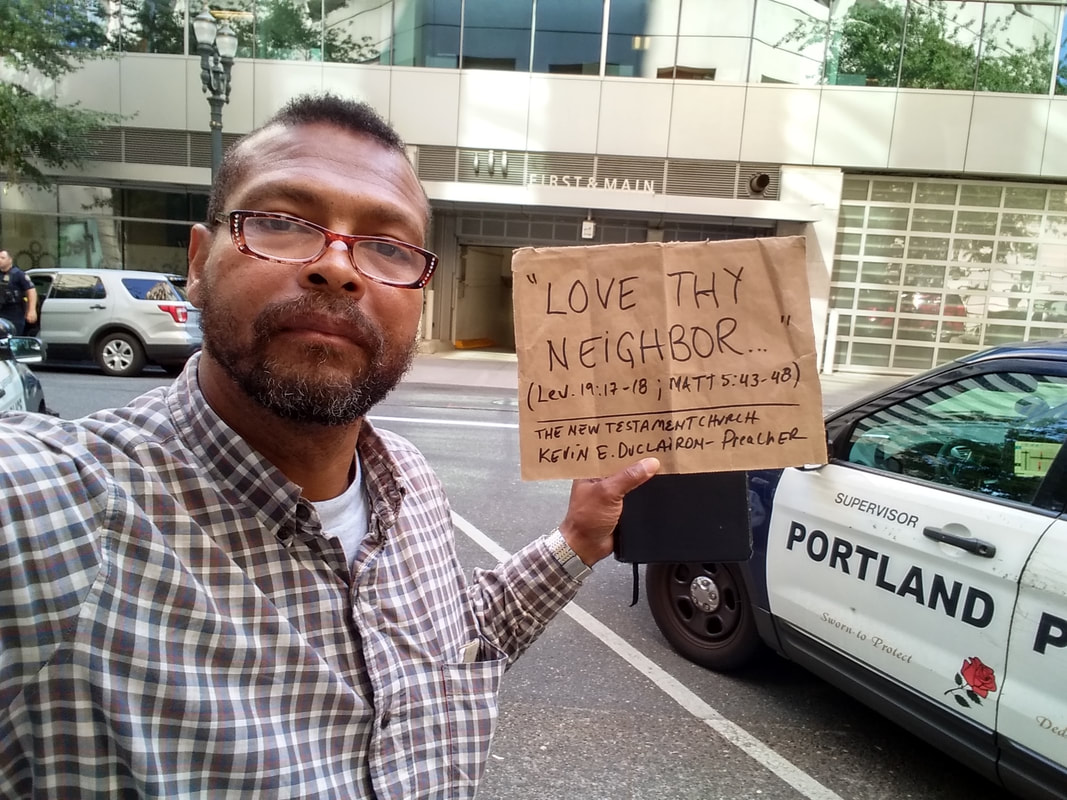 FIRST & MAIN
"LOVE THY
NEiGHBOR..."
(Lev. 19:17-18 ; MATT 5:43-48)
THE NEW TESTAMENT CHURCH
KEViN E. DUCLAIRON- PreacHER
SUPERVISOR
PORTLAND
Sworn to Protect
P
Ded